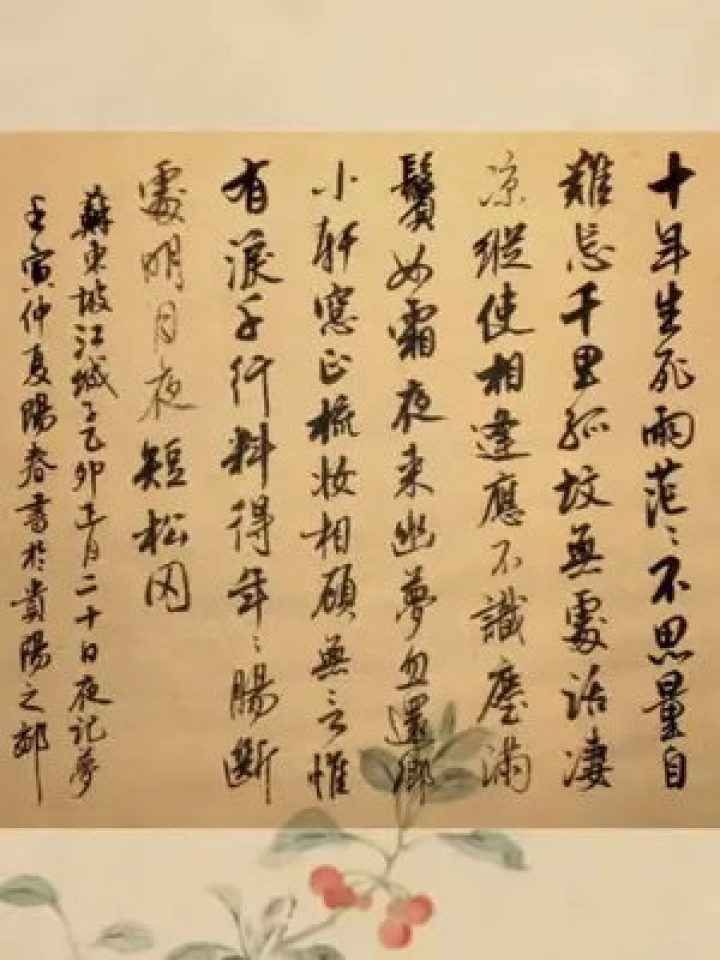 十年生死兩茫〻不思量自
難忘千里孤墳無處話凄
凉縱使相逢應不識塵滿
鬢如霜夜來幽夢忽還鄉
小軒窓正梳妝相顧無言惟
有淚千行料得年〻腸斷
處明月夜短松冈
蘇東坡江城子乙卯正月二十日夜記夢
壬寅仲夏陽春書於貴陽之